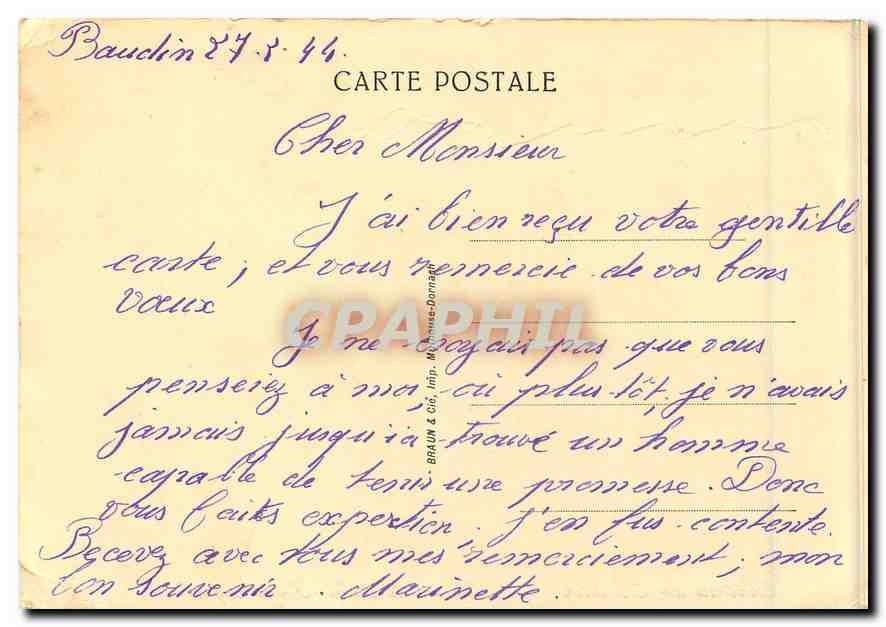 Baudin 27.2.44.
CARTE POSTALE
Cher Monsieur
J'ai bien reçu votre gentille
carte, et vous remercie de vos bons
vœux
CPAPHIL
Je ne croyais pas que vous
penseiez à moi, où plus tôt, je n'avais
jamais jusqu'ia trouvé un homme
capable de tenir une promesse. Donc
vous faites expertion, j'en fus contente.
Recevez avec tous mes remerciement, mon
bon souvenir. Marinette.
BRAUN & Cié, Imp. Mulhouse-Dornach